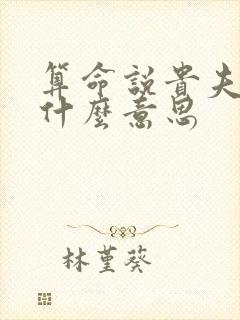 算命說貴夫
什麼意思
林堇葵